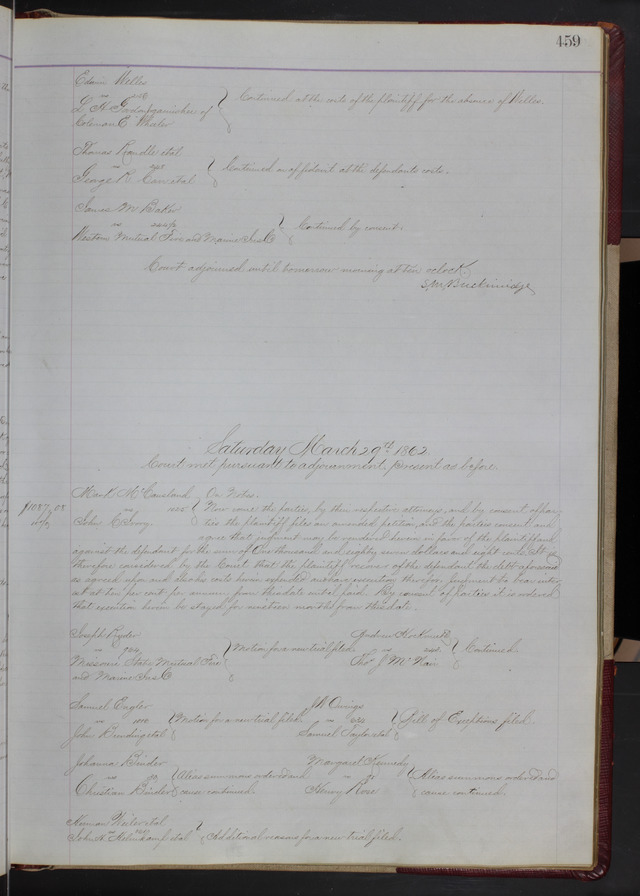 459
Edwin Welles
vs
L. H. garnishee of } Continued at the costs of the plaintiff for the absence of Welles.
Coleman E.
Thomas Randle etal
vs } Continued on affidavit at the defendants costs.
George R. etal
James M Baker
vs } Continued by consent.
Western Mutual Fire and Marine Ins Co
Court adjourned until tomorrow morning at ten oclock.
S. M. Breckinridge
Saturday March 29th 1862
Court met pursuant to adjournment, present as before.
Mark McCausland } On Notes.
$1087 08 vs Now come the parties, by their respective attorneys, and by consent of par
John C. ties the plaintiff files an amended petition, and the parties consent and
agree that judgment may be rendered herein in favor of the plaintiff and
against the defendant for the sum of One thousand and eighty seven dollars and eight cents. It is
therefore considered by the Court that the plaintiff recover of the defendant the debt aforesaid
as agreed upon and also his costs herein expended and have execution therefor, judgment to bear inter
est at ten per cent per annum from this date until paid. By consent of parties it is ordered
that execution herein be stayed for nineteen months from this date.
Joseph Ryder
vs } Motion for a new trial filed.
Missouri State Mutual Fire
and Marine Ins Co
Andrew
vs } Continued.
Thos J McNair
Samuel Engler
vs } Motion for a new trial filed.
John etal
J W Owings
vs } Bill of Exceptions filed.
Samuel Taylor etal
Johanna Binder
vs } Alias summons ordered and
Christian Binder cause continued.
Margaret Kennedy
vs } Alias summons ordered and
Henry Rose cause continued.
Herman etal
vs } Additional reasons for a new trial filed.
John H. etal